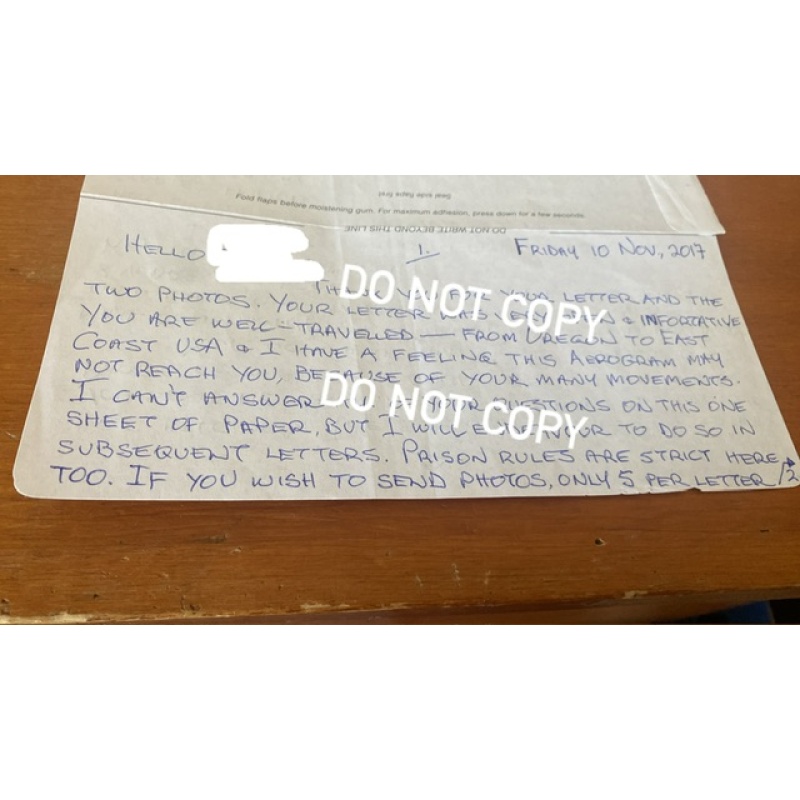 Seal side flaps first
Fold flaps before moistening gum. For maximum adhesion, press down for a few seconds.
DO NOT WRITE BEYOND THIS LINE
HELLO 1. FRIDAY 10 NOV., 2017
THANK YOU FOR YOUR LETTER AND THE
DO NOT COPY
TWO PHOTOS. YOUR LETTER WAS & INFORTATIVE
YOU ARE WELL-TRAVELLED — FROM OREGON TO EAST
COAST USA & I HAVE A FEELING THIS AEROGRAM MAY
NOT REACH YOU, BECAUSE OF YOUR MANY MOVEMENTS.
DO NOT COPY
I CAN'T ANSWER YOUR QUESTIONS ON THIS ONE
SHEET OF PAPER, BUT I WILL ENDEAVOR TO DO SO IN
SUBSEQUENT LETTERS. PRISON RULES ARE STRICT HERE
TOO. IF YOU WISH TO SEND PHOTOS, ONLY 5 PER LETTER /2